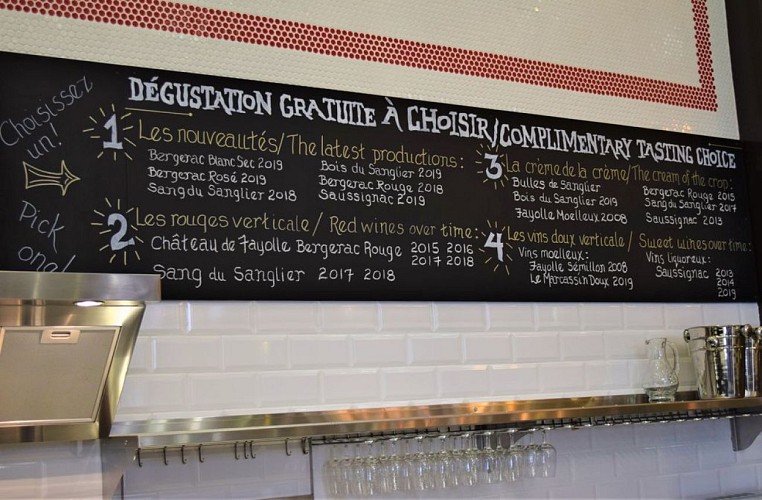 Choisissez
un!
Pick
one!
DÉGUSTATION GRATUITE À CHOISIR/COMPLIMENTARY TASTING CHOICE
1 Les nouveautés/The latest productions:
Bergerac Blanc Sec 2019
Bergerac Rosé 2019
Sang du Sanglier 2018
Bois du Sanglier 2019
Bergerac Rouge 2018
Saussignac 2019
2 Les rouges verticale/Red wines over time:
Château de Fayolle Bergerac Rouge 2015 2016
2017 2018
Sang du Sanglier 2017 2018
3 La crème de la crème/The cream of the crop:
Bulles de Sanglier
Bois du Sanglier 2019
Fayolle Moelleux 2008
Bergerac Rouge 2015
Sang du Sanglier 2017
Saussignac 2013
4 Les vins doux verticale/Sweet wines over time:
Vins moelleux:
Fayolle Sémillon 2008
Le Marcassin Doux 2019
Vins liquoreux:
Saussignac 2013
2014
2019